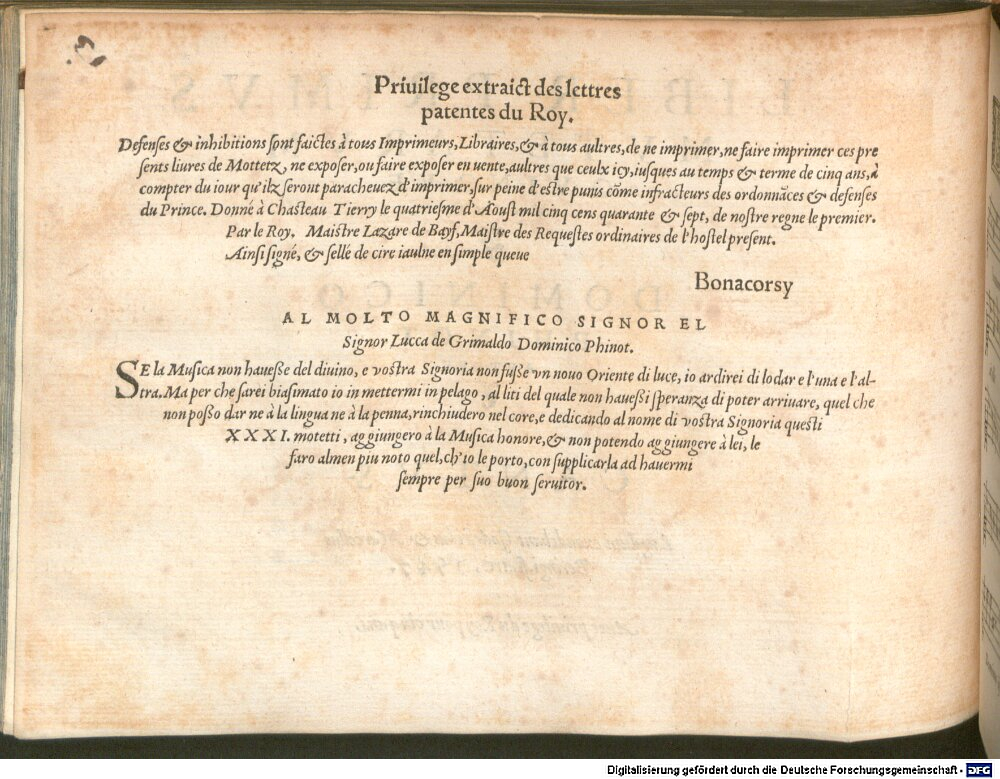 Priuilege extraict des lettres
patentes du Roy.
Defenses & inhibitions sont faictes à tous Imprimeurs, Libraires, & à tous aultres, de ne imprimer, ne faire imprimer ces pre
sents liures de Mottetz, ne exposer, ou faire exposer en vente, aultres que ceulx icy, iusques au temps & terme de cinq ans, à
compter du iour qu'ilz seront paracheuez d'imprimer, sur peine d'estre punis cõme infracteurs des ordonnãces & defenses
du Prince. Donné à Chasteau Tierry le quatriesme d'Aoust mil cinq cens quarante & sept, de nostre regne le premier.
Par le Roy. Maistre Lazare de Bayf, Maistre des Requestes ordinaires de l'hostel present.
Ainsi signé, & sellé de cire iaulne en simple queue
Bonacorsy
AL MOLTO MAGNIFICO SIGNOR EL
Signor Lucca de Grimaldo Dominico Phinot.
SE la Musica non hauesse del diuino, e vostra Signoria non fusse vn nouo Oriente di luce, io ardirei di lodar e l'una e l'al-
tra. Ma per che sarei biasimato io in mettermi in pelago, al liti del quale non hauessi speranza di poter arriuare, quel che
non posso dar ne à la lingua ne à la penna, rinchiudero nel core, e dedicando al nome di vostra Signoria questi
XXXI. motetti, aggiungero à la Musica honore, & non potendo aggiungere à lei, le
faro almen piu noto quel, ch'io le porto, con supplicarla ad hauermi
sempre per suo buon seruitor.
Digitalisierung gefördert durch die Deutsche Forschungsgemeinschaft - DFG